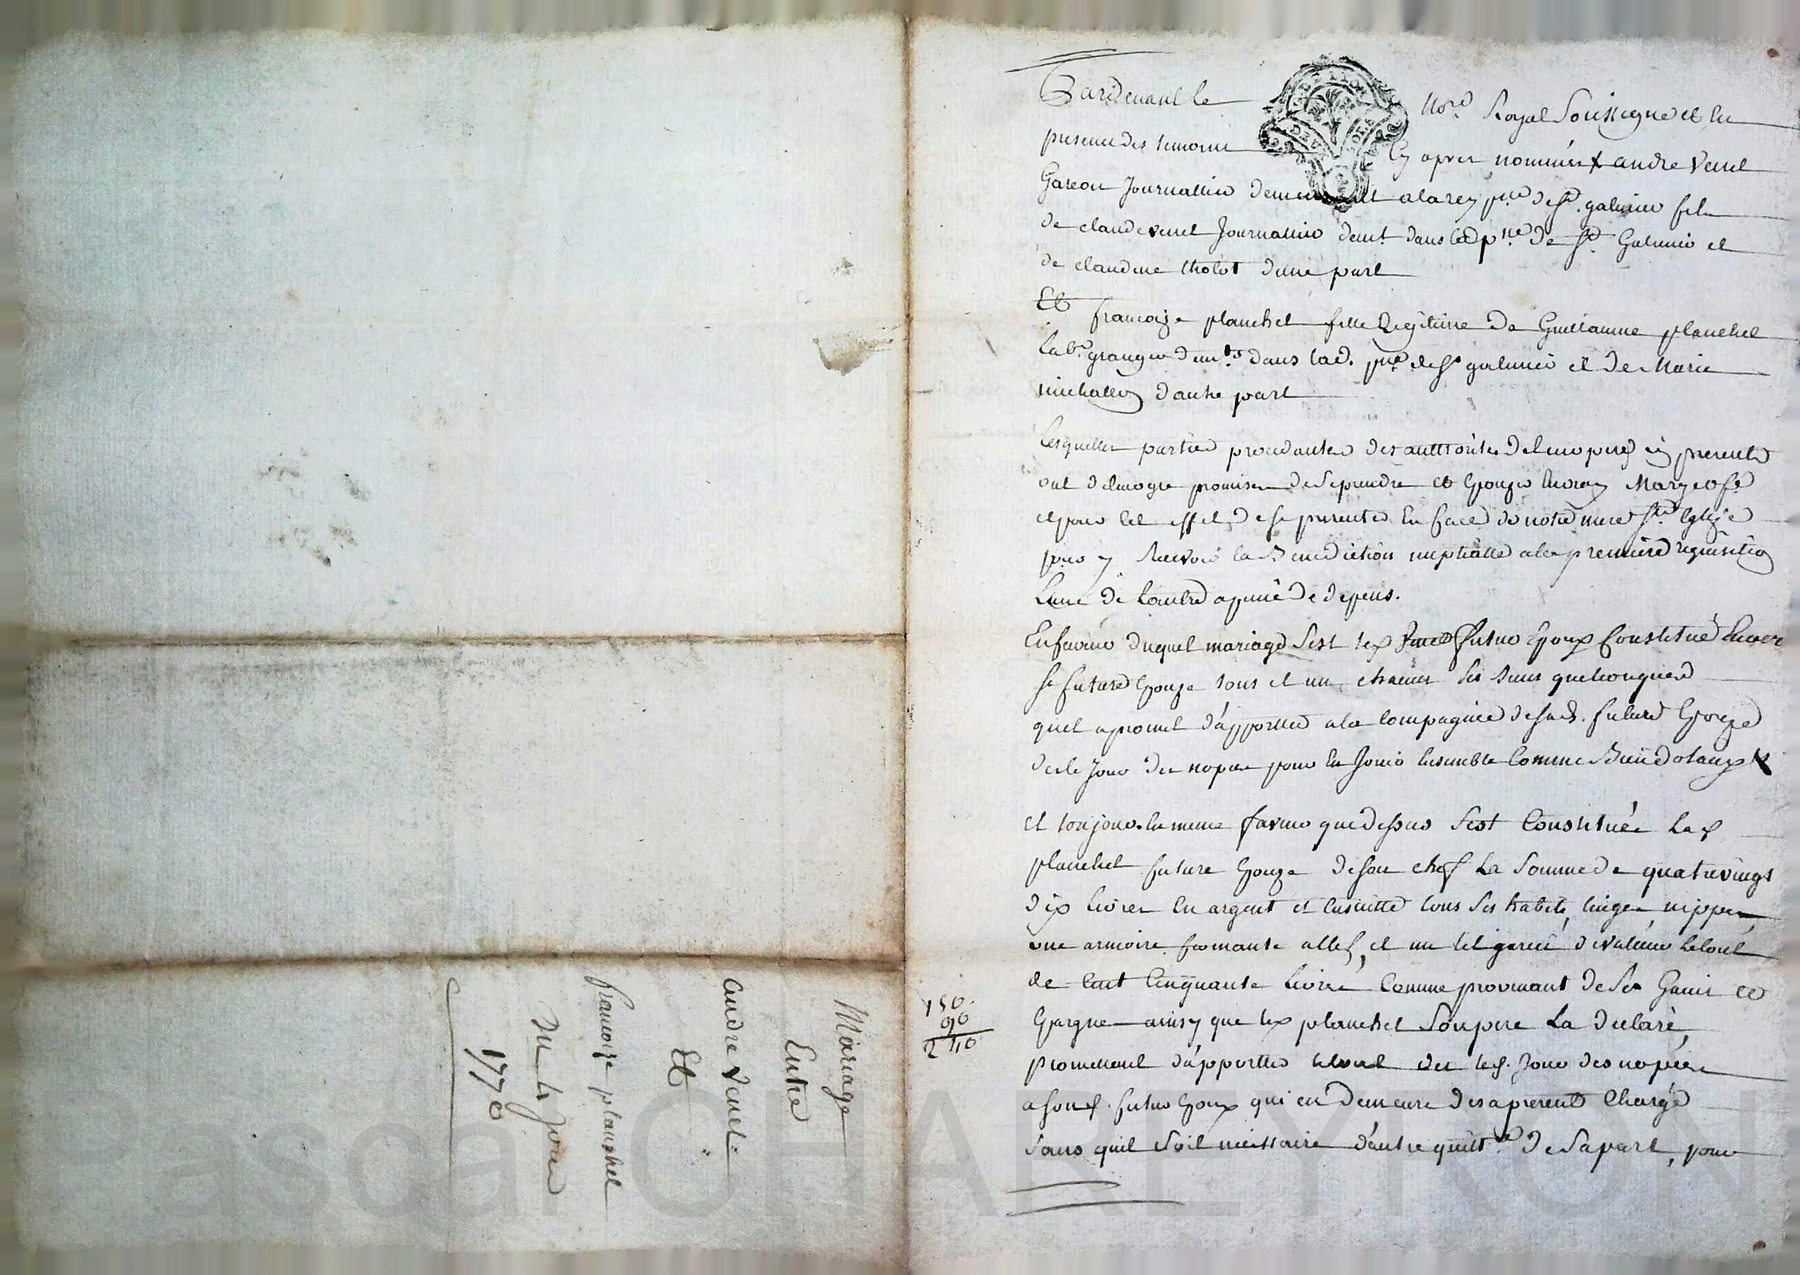 Pardevant le Nore. Royal Soussigne et En
presence des temoins Cy apres nommés x andre Venet
Garcon Journallier demeurant alarey psse de st. galmier fils
de claude venet Journallier demt. dans lad psse de St. Galmier et
de claudine tholot d'une part
Et francoize planchet fille Legitime de Guillaume planchet
lab.r granger demts. dans lad. psse de st galmier et de Marie
michallon d'autre part
Lesquelles parties procedantes des authorités de leurs peres cy presents
ont de leur gre promises de se prendre et Epouzer En vray Mary et fe
et pour cet effet de se presenter En face de notre mere Ste Eglize
pour y Recevoir la Benediction nuptialle a la premiere requisition
Lune de Lautre a peine de depens.
En faveur duquel mariage s'est led Venet futur Epoux Constitué Envers
sa future Epouze tous et un chacuns ses biens quelconques
quil a promet d'apporter a la Compagnie de sad. future Epouze
des le Jour des nopces pour En Jouir Ensemble Comme Biens dotaux x
et toujours En meme faveur que dessus s'est Constituée Lad
planchet future Epouze de son chef La Somme de quatrevingt
dix Livres En argent et Ensuitte tous ses habits, linges nippes,
une armoire fermante a clef, et un lit garni, de valeur Le tout
de Cent Cinquante Livres Comme provenant de ses Gains et
Epargnes ainsy que led planchet Son pere La declaré,
promettant d'apporter le tout des led. Jour des nopces
a son d. futur Epoux qui en demeure des apresent Chargé
Sans quil Soit necessaire d'autre quitt.ce de sa part, pour
150
90
240
Mariage
Entre
andre Venet
Et
francoize planchet
Du 1er Juin
1770
Pascal CHARLYRON